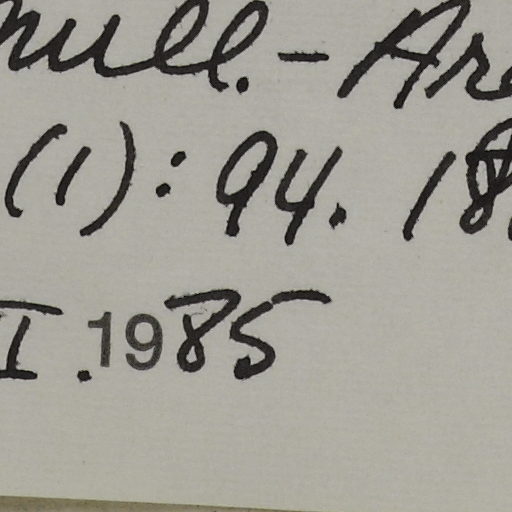 Muell. - Ar
(1): 94. 18
I. 1985